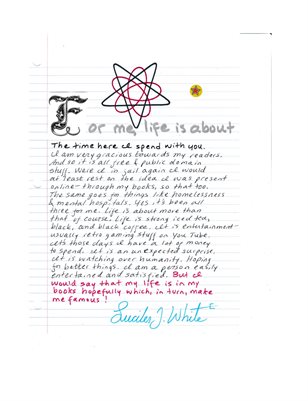 For me life is about
The time here I spend with you.
I am very gracious towards my readers.
And so it is all free & public domain
stuff. Were I in jail again I would
at least rest on the idea I was present
online - through my books, so that too.
The same goes for things like homelessness
& mental hospitals. Yes it's been all
three for me. Life is about more than
that of course. Life is strong iced tea,
black, and black coffee. It is entertainment -
usually retro gaming stuff on You Tube.
It's those days I have a lot of money
to spend. It is an unexpected surprise.
It is watching over humanity. Hoping
in better things. I am a person easily
entertained and satisfied. But I
would say that my life is in my
books hopefully which, in turn, make
me famous!
Lucifer J. White